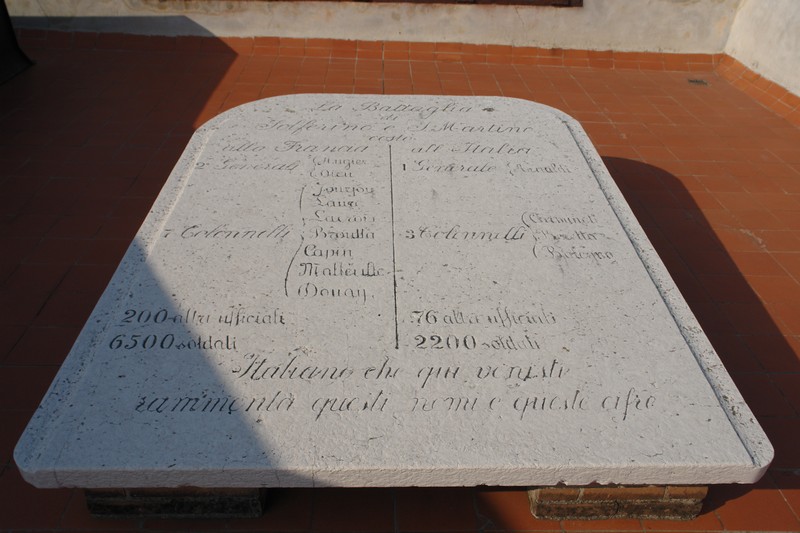 La Battaglia
di
Solferino e S. Martino
costò
alla Francia
2 Generali
Auger
Dieu
7 Colonnelli
Jourjon
Laure
Lacroix
Broutta
Capin
Maleville
Douay
200 altri ufficiali
6500 soldati
all'Italia
1 Generale Arnaldi
3 Colonnelli
Beretta
Bologna
76 altri ufficiali
2200 soldati
Italiano che qui venisti
rammenta questi nomi e queste cifre